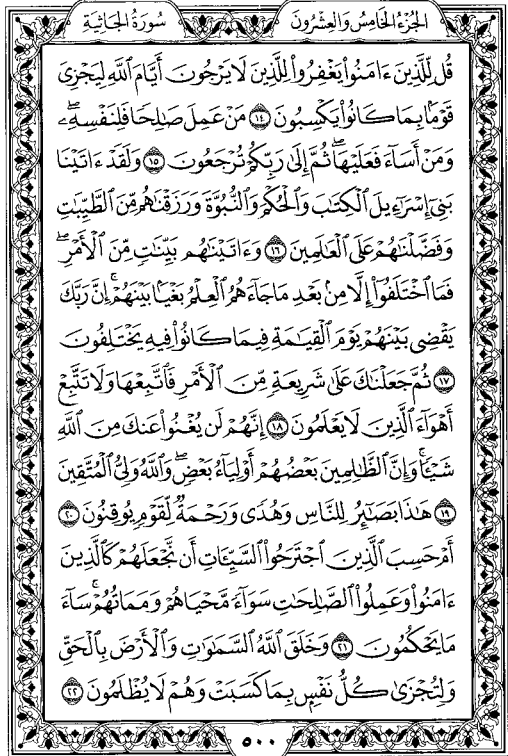 سُورَةُ الجَاثِيَةِ
الجُزْءُ الخَامِسُ وَالعِشْرُونَ
قُل لِّلَّذِينَ ءَامَنُوا۟ يَغْفِرُوا۟ لِلَّذِينَ لَا يَرْجُونَ أَيَّامَ ٱللَّهِ لِيَجْزِىَ
قَوْمًۢا بِمَا كَانُوا۟ يَكْسِبُونَ ١٤ مَنْ عَمِلَ صَٰلِحًا فَلِنَفْسِهِۦ ۖ
وَمَنْ أَسَآءَ فَعَلَيْهَا ۖ ثُمَّ إِلَىٰ رَبِّكُمْ تُرْجَعُونَ ١٥ وَلَقَدْ ءَاتَيْنَا
بَنِىٓ إِسْرَٰٓءِيلَ ٱلْكِتَٰبَ وَٱلْحُكْمَ وَٱلنُّبُوَّةَ وَرَزَقْنَٰهُم مِّنَ ٱلطَّيِّبَٰتِ
وَفَضَّلْنَٰهُمْ عَلَى ٱلْعَٰلَمِينَ ١٦ وَءَاتَيْنَٰهُم بَيِّنَٰتٍ مِّنَ ٱلْأَمْرِ ۖ
فَمَا ٱخْتَلَفُوٓا۟ إِلَّا مِنۢ بَعْدِ مَا جَآءَهُمُ ٱلْعِلْمُ بَغْيًۢا بَيْنَهُمْ ۚ إِنَّ رَبَّكَ
يَقْضِى بَيْنَهُمْ يَوْمَ ٱلْقِيَٰمَةِ فِيمَا كَانُوا۟ فِيهِ يَخْتَلِفُونَ
١٧ ثُمَّ جَعَلْنَٰكَ عَلَىٰ شَرِيعَةٍ مِّنَ ٱلْأَمْرِ فَٱتَّبِعْهَا وَلَا تَتَّبِعْ
أَهْوَآءَ ٱلَّذِينَ لَا يَعْلَمُونَ ١٨ إِنَّهُمْ لَن يُغْنُوا۟ عَنكَ مِنَ ٱللَّهِ
شَيْـًٔا ۚ وَإِنَّ ٱلظَّٰلِمِينَ بَعْضُهُمْ أَوْلِيَآءُ بَعْضٍ ۖ وَٱللَّهُ وَلِىُّ ٱلْمُتَّقِينَ
١٩ هَٰذَا بَصَٰٓئِرُ لِلنَّاسِ وَهُدًى وَرَحْمَةٌ لِّقَوْمٍ يُوقِنُونَ ٢٠
أَمْ حَسِبَ ٱلَّذِينَ ٱجْتَرَحُوا۟ ٱلسَّيِّـَٔاتِ أَن نَّجْعَلَهُمْ كَٱلَّذِينَ
ءَامَنُوا۟ وَعَمِلُوا۟ ٱلصَّٰلِحَٰتِ سَوَآءً مَّحْيَاهُمْ وَمَمَاتُهُمْ ۚ سَآءَ
مَا يَحْكُمُونَ ٢١ وَخَلَقَ ٱللَّهُ ٱلسَّمَٰوَٰتِ وَٱلْأَرْضَ بِٱلْحَقِّ
وَلِتُجْزَىٰ كُلُّ نَفْسٍۭ بِمَا كَسَبَتْ وَهُمْ لَا يُظْلَمُونَ ٢٢
٥٠٠